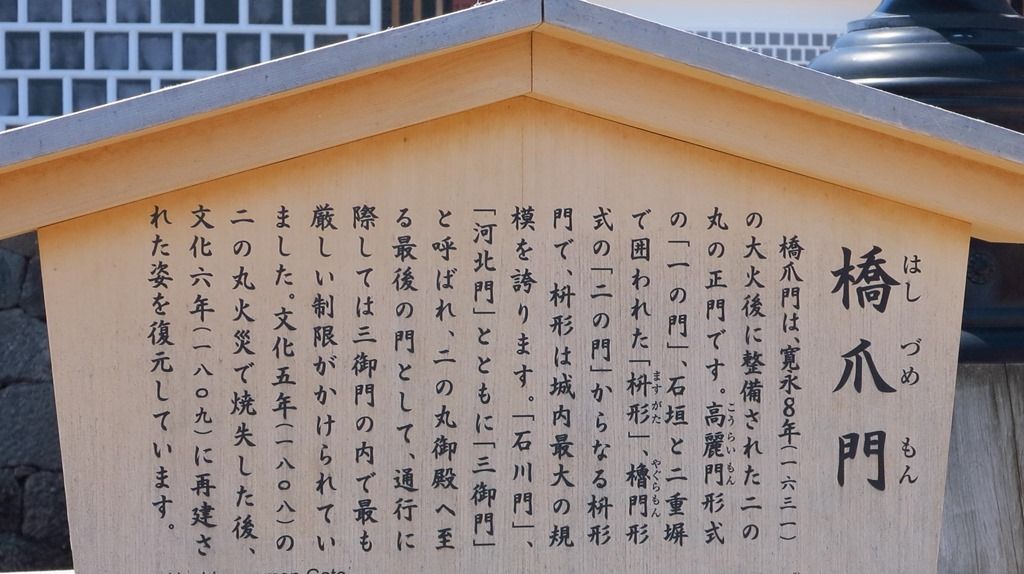 橋爪門
はしづめもん
橋爪門は、寛永8年(一六三一)
の大火後に整備された二の
丸の正門です。高麗門形式
こうらいもん
の「一の門」、石垣と二重塀
で囲われた「枡形」、櫓門形
ますがた
やぐらもん
式の「二の門」からなる枡形
門で、枡形は城内最大の規
模を誇ります。「石川門」、
「河北門」とともに「三御門」
と呼ばれ、二の丸御殿へ至
る最後の門として、通行に
際しては三御門の内で最も
厳しい制限がかけられてい
ました。文化五年(一八〇八)の
二の丸火災で焼失した後、
文化六年(一八〇九)に再建さ
れた姿を復元しています。